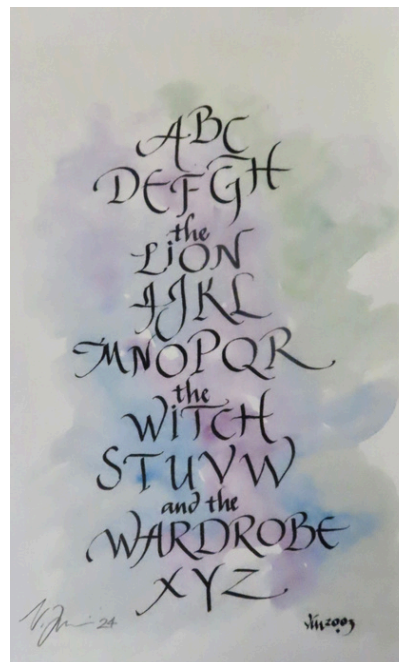 ABC
DEFGH
the
LiON
IJKL
MNOPQR
the
WiTCH
STUVW
and the
WARDROBE
XYZ
24